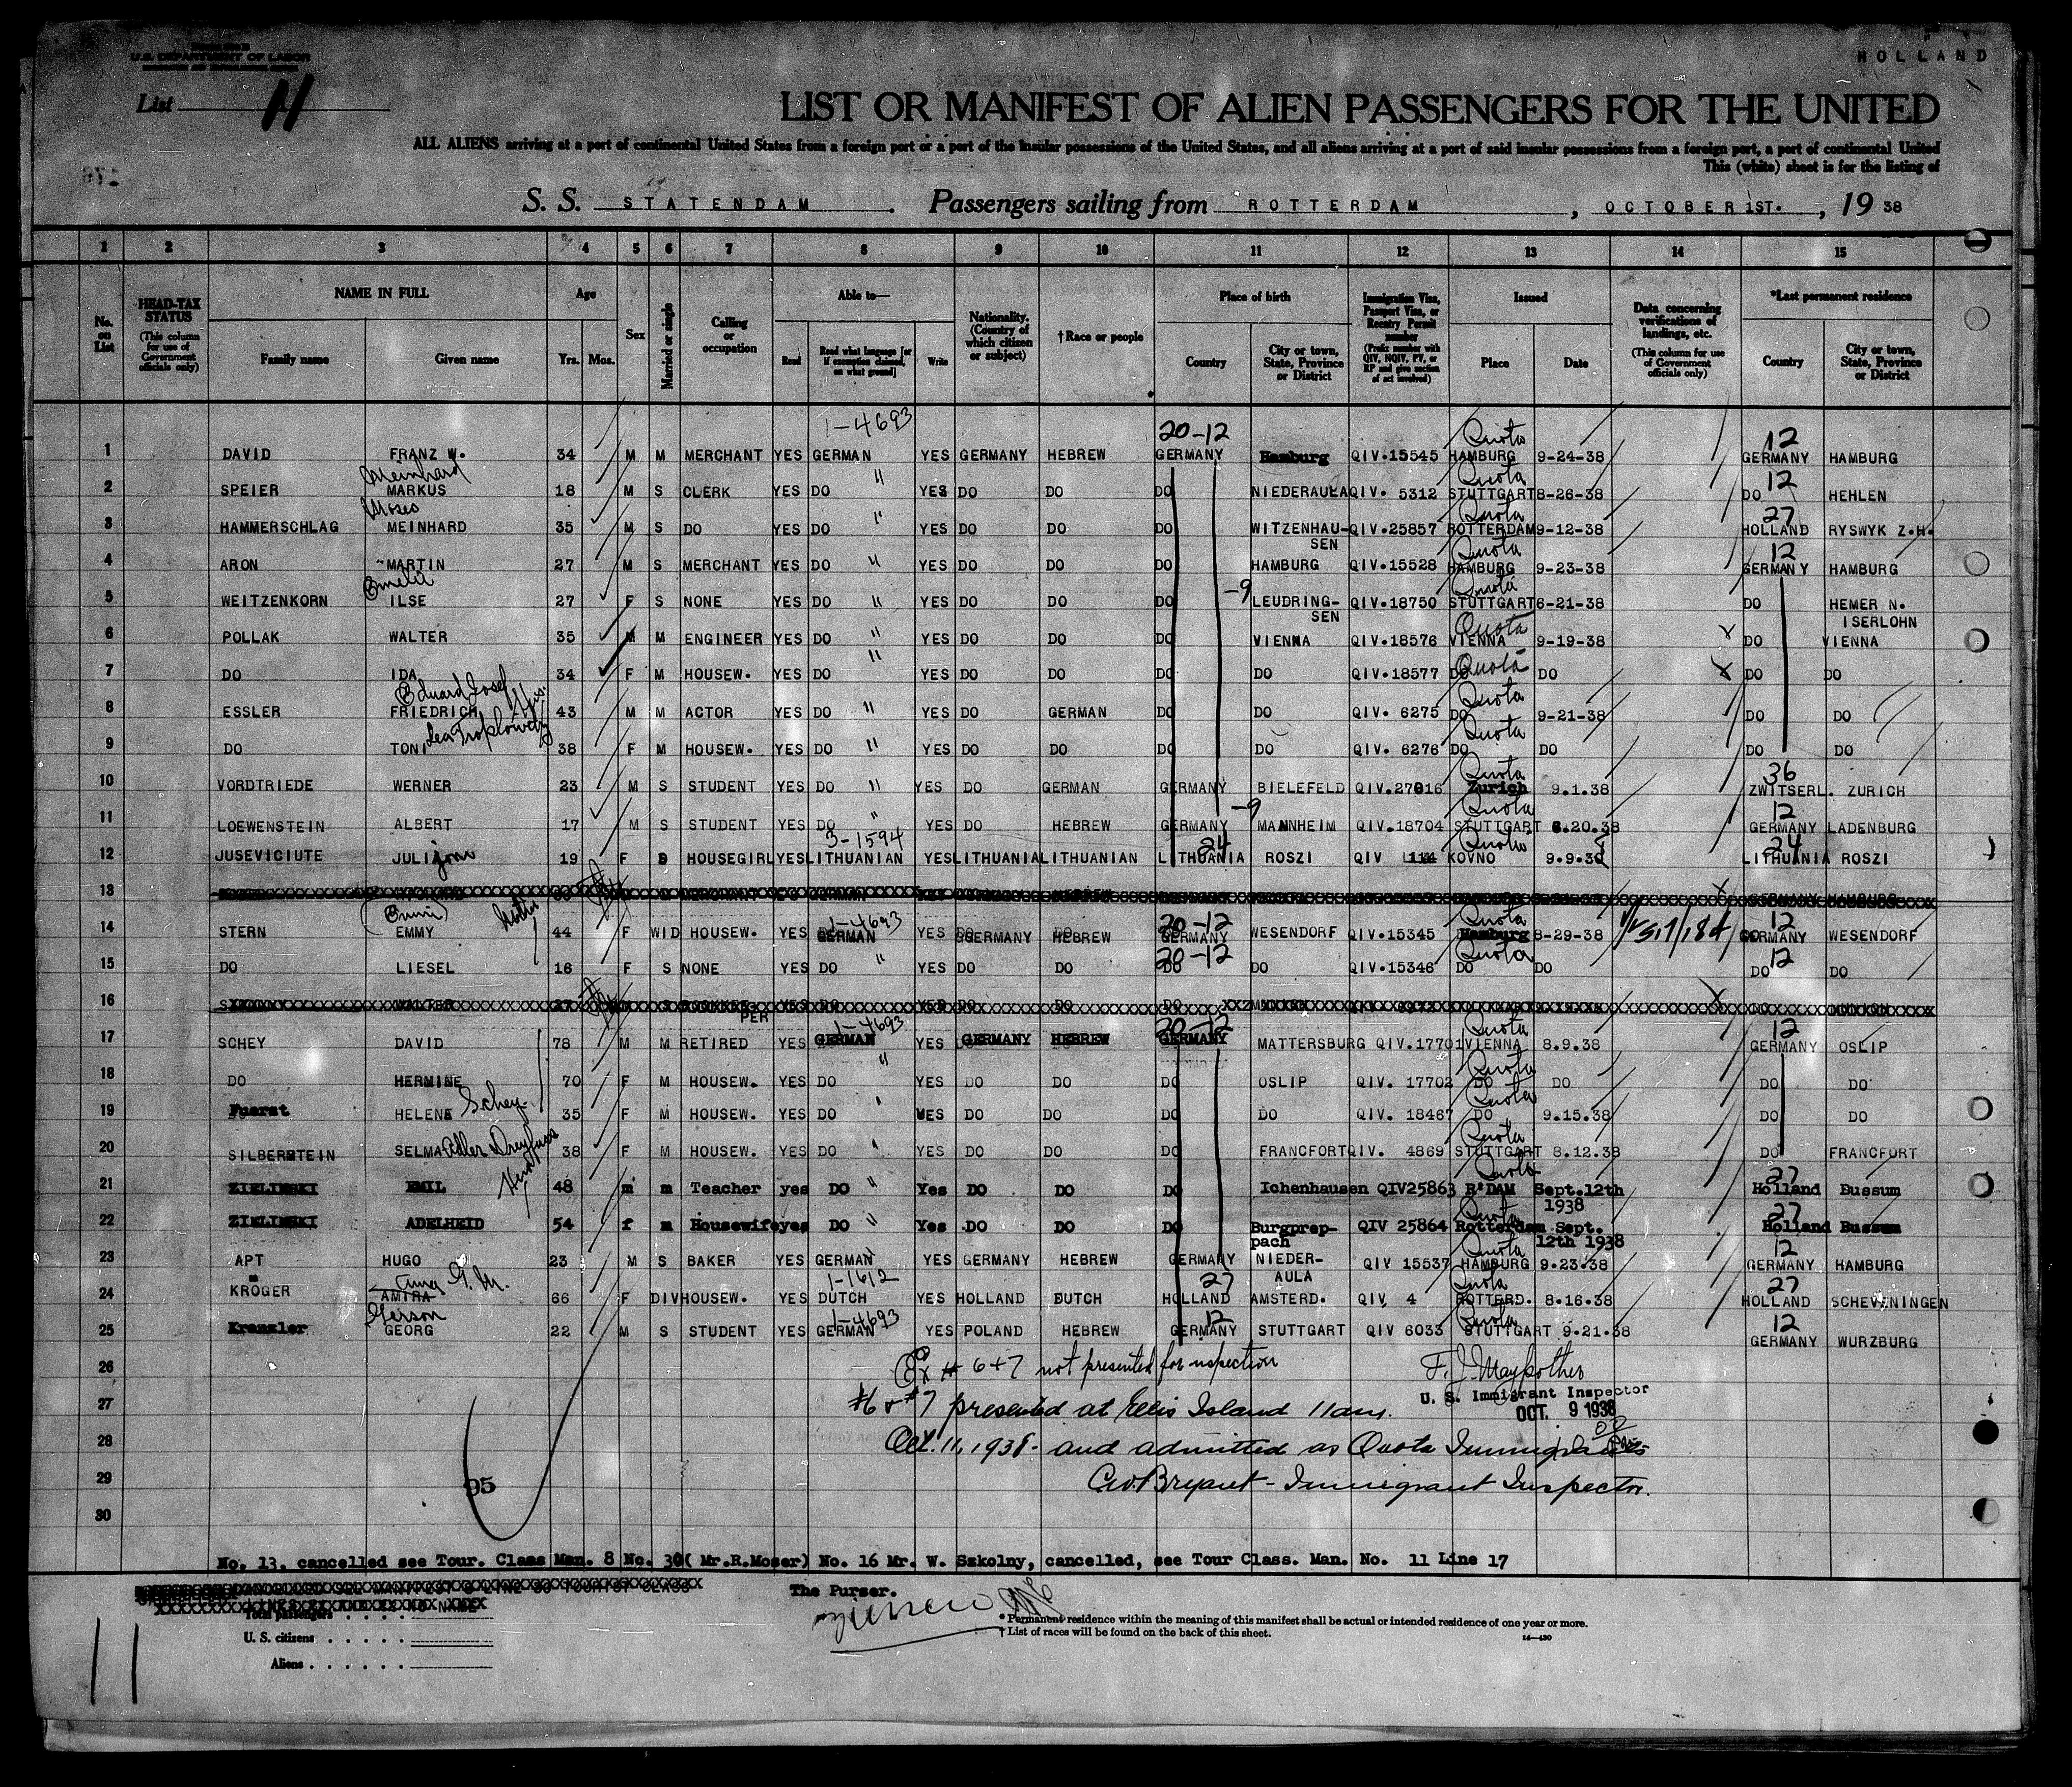 HOLLAND
U.S. DEPARTMENT OF LABOR
List 11
LIST OR MANIFEST OF ALIEN PASSENGERS FOR THE UNITED
ALL ALIENS arriving at a port of continental United States from a foreign port or a port of the insular possessions of the United States, and all aliens arriving at a port of said insular possessions from a foreign port, a port of continental United
This (white) sheet is for the listing of
S. S. STATENDAM. Passengers sailing from ROTTERDAM, OCTOBER 1ST., 19 38
1 2 3 4 5 6 7 8 9 10 11 12 13 14 15
No. on List
HEAD-TAX STATUS (This column for use of Government officials only)
NAME IN FULL Family name Given name
Age Yrs. Mos.
Sex
Married or single
Calling or occupation
Able to— Read Read what language [or if exemption claimed, on what ground] Write
Nationality. (Country of which citizen or subject)
†Race or people
Place of birth Country City or town, State, Province or District
Immigration Visa, Passport Visa, or Reentry Permit number (Prefix number with QIV, NQIV, PV, or RP and give section of act involved)
Issued Place Date
Data concerning verifications of landings, etc. (This column for use of Government officials only)
*Last permanent residence Country City or town, State, Province or District
1-4693 20-12 Quota 12
1 DAVID FRANZ W. 34 M M MERCHANT YES GERMAN YES GERMANY HEBREW GERMANY Hamburg QIV.15545 HAMBURG 9-24-38 GERMANY HAMBURG
Meinhard " Quota 12
2 SPEIER MARKUS 18 M S CLERK YES DO YES DO DO DO NIEDERAULA QIV. 5312 STUTTGART 8-26-38 DO HEHLEN
Moses " Quota 27
3 HAMMERSCHLAG MEINHARD 35 M S DO YES DO YES DO DO DO WITZENHAUSEN QIV.25857 ROTTERDAM 9-12-38 HOLLAND RYSWYK Z.H.
" Quota 12
4 ARON MARTIN 27 M S MERCHANT YES DO YES DO DO DO HAMBURG QIV.15528 HAMBURG 9-23-38 GERMANY HAMBURG
Emelie " -9 Quota
5 WEITZENKORN ILSE 27 F S NONE YES DO YES DO DO DO LEUDRINGSEN QIV.18750 STUTTGART 6-21-38 DO HEMER N. ISERLOHN
" Quota
6 POLLAK WALTER 35 M M ENGINEER YES DO YES DO DO DO VIENNA QIV.18576 VIENNA 9-19-38 x DO VIENNA
" Quota
7 DO IDA 34 F M HOUSEW. YES DO YES DO DO DO DO QIV.18577 DO DO x DO DO
Eduard Josef " Quota
8 ESSLER FRIEDRICH 43 M M ACTOR YES DO YES DO GERMAN DO DO QIV. 6275 DO 9-21-38 DO DO
" Quota
9 DO TONI Lea Troplowitz 38 F M HOUSEW. YES DO YES DO DO DO DO QIV. 6276 DO DO DO DO
" Quota 36
10 VORDTRIEDE WERNER 23 M S STUDENT YES DO YES DO GERMAN GERMANY BIELEFELD QIV.27816 Zurich 9.1.38 ZWITSERL. ZURICH
" -9 Quota 12
11 LOEWENSTEIN ALBERT 17 M S STUDENT YES DO YES DO HEBREW GERMANY MANNHEIM QIV.18704 STUTTGART 8.20.38 GERMANY LADENBURG
3-1594 24 Quota 24
12 JUSEVICIUTE JULI 19 F S HOUSEGIRL YES LITHUANIAN YES LITHUANIA LITHUANIAN LITHUANIA ROSZI QIV 114 KOVNO 9.9.38 LITHUANIA ROSZI
13
(Emmi) 1-4693 20-12 Quota 12
14 STERN EMMY 44 F WID HOUSEW. YES GERMAN YES GERMANY HEBREW GERMANY WESENDORF QIV.15345 Hamburg 8-29-38 GERMANY WESENDORF
" 20-12 Quota 12
15 DO LIESEL 16 F S NONE YES DO YES DO DO DO DO QIV.15346 DO DO DO DO
16
1-4693 20-12 Quota 12
17 SCHEY DAVID 78 M M RETIRED YES GERMAN YES GERMANY HEBREW GERMANY MATTERSBURG QIV.17701 VIENNA 8.9.38 GERMANY OSLIP
" Quota
18 DO HERMINE 70 F M HOUSEW. YES DO YES DO DO DO OSLIP QIV. 17702 DO DO DO DO
Quota
19 Fuerst HELENE Schey 35 F M HOUSEW. YES DO YES DO DO DO DO QIV. 18467 DO 9.15.38 DO DO
Quota
20 SILBERSTEIN SELMA Adler Dreyfuss 38 F M HOUSEW. YES DO YES DO DO DO FRANCFORT QIV. 4869 STUTTGART 8.12.38 DO FRANCFORT
" Quota 27
21 ZIELINSKI EMIL 48 m m Teacher yes DO Yes DO DO DO Ichenhausen QIV25863 R'DAM Sept.12th 1938 Holland Bussum
" Quota 27
22 ZIELINSKI ADELHEID 54 f m Housewife yes DO Yes DO DO DO Burgpreppach QIV 25864 Rotterdam Sept. 12th 1938 Holland Bussum
" Quota 12
23 APT HUGO 23 M S BAKER YES GERMAN YES GERMANY HEBREW GERMANY NIEDER-AULA QIV 15537 HAMBURG 9.23.38 GERMANY HAMBURG
Anna G. M. 1-1612 27 Quota 27
24 KROGER AMIRA 66 F DIV HOUSEW. YES DUTCH YES HOLLAND DUTCH HOLLAND AMSTERD. QIV 4 ROTTERD. 8.16.38 HOLLAND SCHEVENINGEN
Gerson 1-4693 12 Quota 12
25 Krenzler GEORG 22 M S STUDENT YES GERMAN YES POLAND HEBREW GERMANY STUTTGART QIV 6033 STUTTGART 9.21.38 GERMANY WURZBURG
26 Ex # 6+7 not presented for inspection F. J. Maypother
U. S. Immigrant Inspector
27 #6 & #7 presented at Ellis Island 11am. OCT. 9 1938
28 Oct. 11, 1938 - and admitted as Quota Immigrants
29 95 Geo. Bryant - Immigrant Inspector.
30
No. 13. cancelled see Tour. Class Man. 8 No. 30( Mr.R.Moser) No. 16 Mr. W. Szkolny, cancelled, see Tour Class. Man. No. 11 Line 17
The Purser.
Total passengers
U. S. citizens
Aliens
* Permanent residence within the meaning of this manifest shall be actual or intended residence of one year or more.
† List of races will be found on the back of this sheet.
11